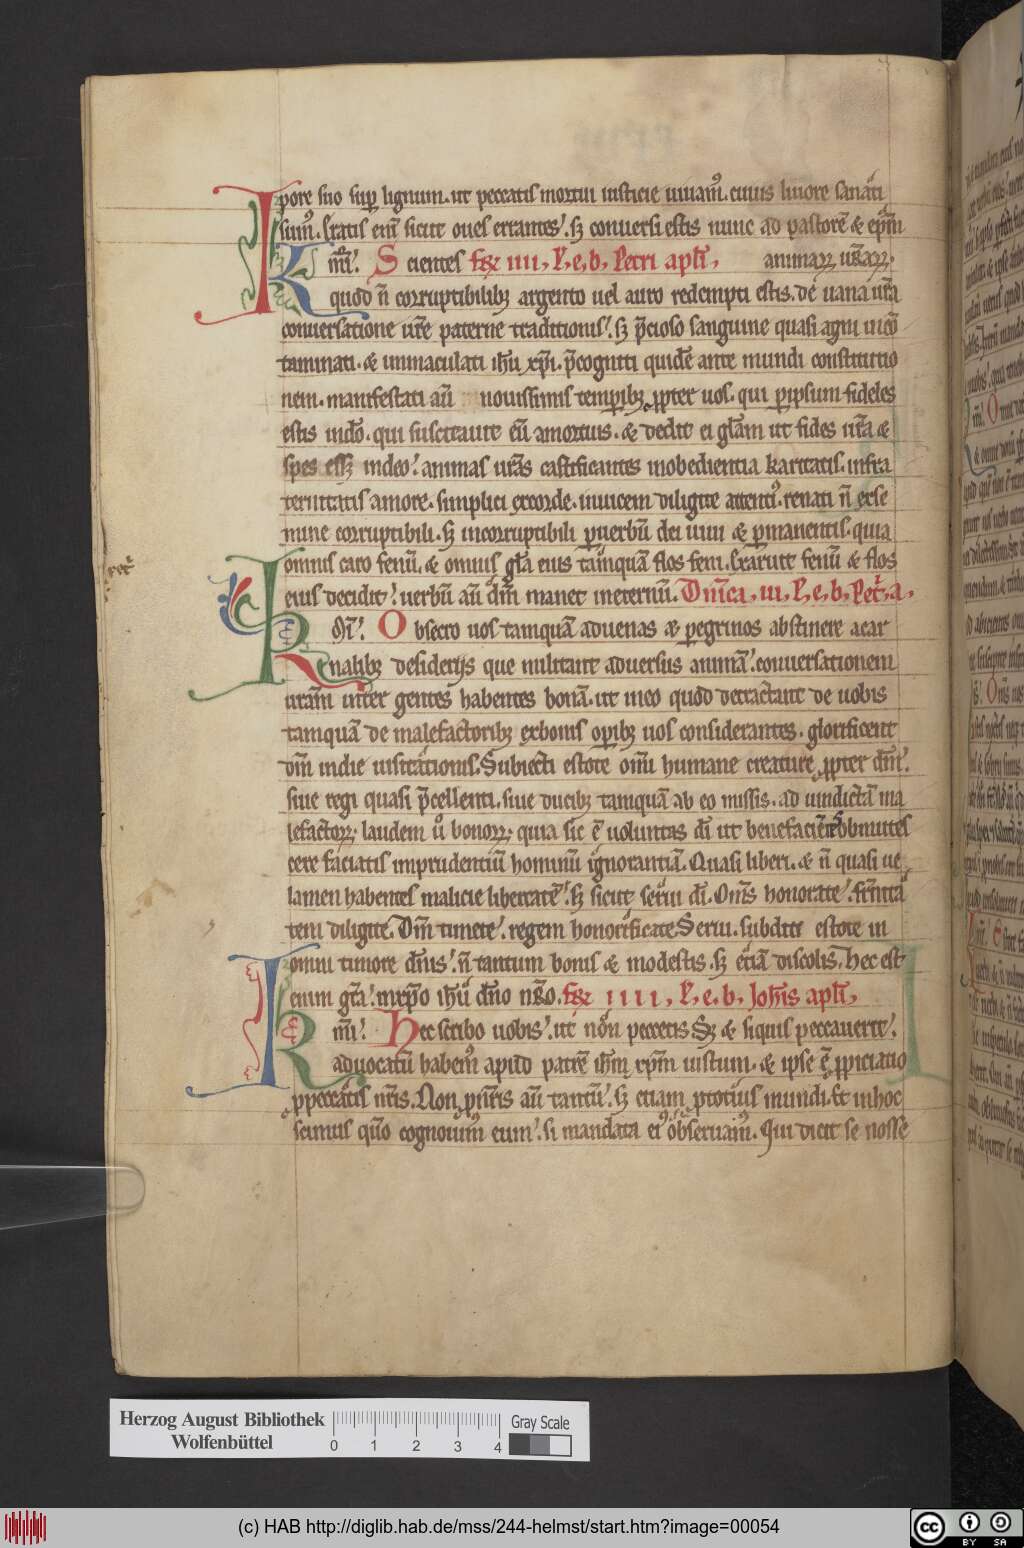 pore suo sup lignum. ut peccatis mortui iusticie uiuam᷒. cuius liuore sanati
sum᷒. Eratis eni᷒ sicut oues errantes. sꝫ conuersi estis nunc ad pastorē & epm
animaꝝ uraꝝ.
Kmi. Scientes fr iiii, L. e. b. Petri apli,
quod n̄ corruptibilibꝫ argento uel auro redempti estis. de uana ura
conuersatione ure paterne traditionis. sꝫ p̄cioso sanguine quasi agni incō
taminati. & immaculati ihu xpi. p̄cogniti quidē ante mundi constitutio
nem. manifestati aū nouissimis temporibꝫ propter uos. qui p ipsum fideles
estis in dō. qui suscitauit eū a mortuis. & dedit ei glam ut fides ura &
spes essꝫ in deo. animas uras castificantes in obedientia karitatis. in fra
ternitatis amore. simplici ex corde. inuicem diligite attenti᷒. renati n̄ ex se
mine corruptibili. sꝫ incorruptibili p uerbū dei uiui & pmanentis. quia
omnis caro fenū. & omnis gla eius tamquā flos feni. Exaruit fenū & flos
eius decidit. uerbū aū dni manet in eternū. Dnica. iii. L. e. b. Petr. a.
Kmi. Obsecro uos tamquā aduenas & pegrinos abstinere a car
nalibꝫ desiderijs que militant aduersus animā. conuersationem
uram inter gentes habentes bonā. ut in eo quod detractant de uobis
tamquā de malefactoribꝫ ex bonis opibꝫ uos considerantes. glorificent
dm in die uisitationis. Subiecti estote omi humane creature propter dm.
siue regi quasi p̄cellenti. siue ducibꝫ tamquā ab eo missis. ad uindictā ma
lefactoꝝ. laudem u̅ bonoꝝ. quia sic ē uoluntas di ut benefaciētes obmutes
cere faciatis imprudentiū hominū ignorantiā. Quasi liberi. & n̄ quasi ue
lamen habentes malicie libertatē. sꝫ sicut serui di. Oms honorate. frnita
tem diligite. Dm timete. regem honorificate. Serui. subditi estote in
omni timore dnis. n̄ tantum bonis & modestis. sꝫ etiā discolis. Hec est
enim gra. in xpo ihu dno nro. fr iiii, L. e. b. Johis apli,
Kmi. Hec scribo uobis. ut non peccetis Sꝫ & siquis peccauerit.
aduocatū habem᷒ apud patrē ihm xpm iustum. & ipse ē ppiciatio
p peccatis nris. Non p nris aū tantū. sꝫ etiam p totius mundi. Et in hoc
scimus qm cognouim᷒ eum. si mandata ei᷒ obseruam᷒. Qui dicit se nosse
Herzog August Bibliothek
Wolfenbüttel
0 1 2 3 4
Gray Scale
(c) HAB http://diglib.hab.de/mss/244-helmst/start.htm?image=00054
cc BY SA